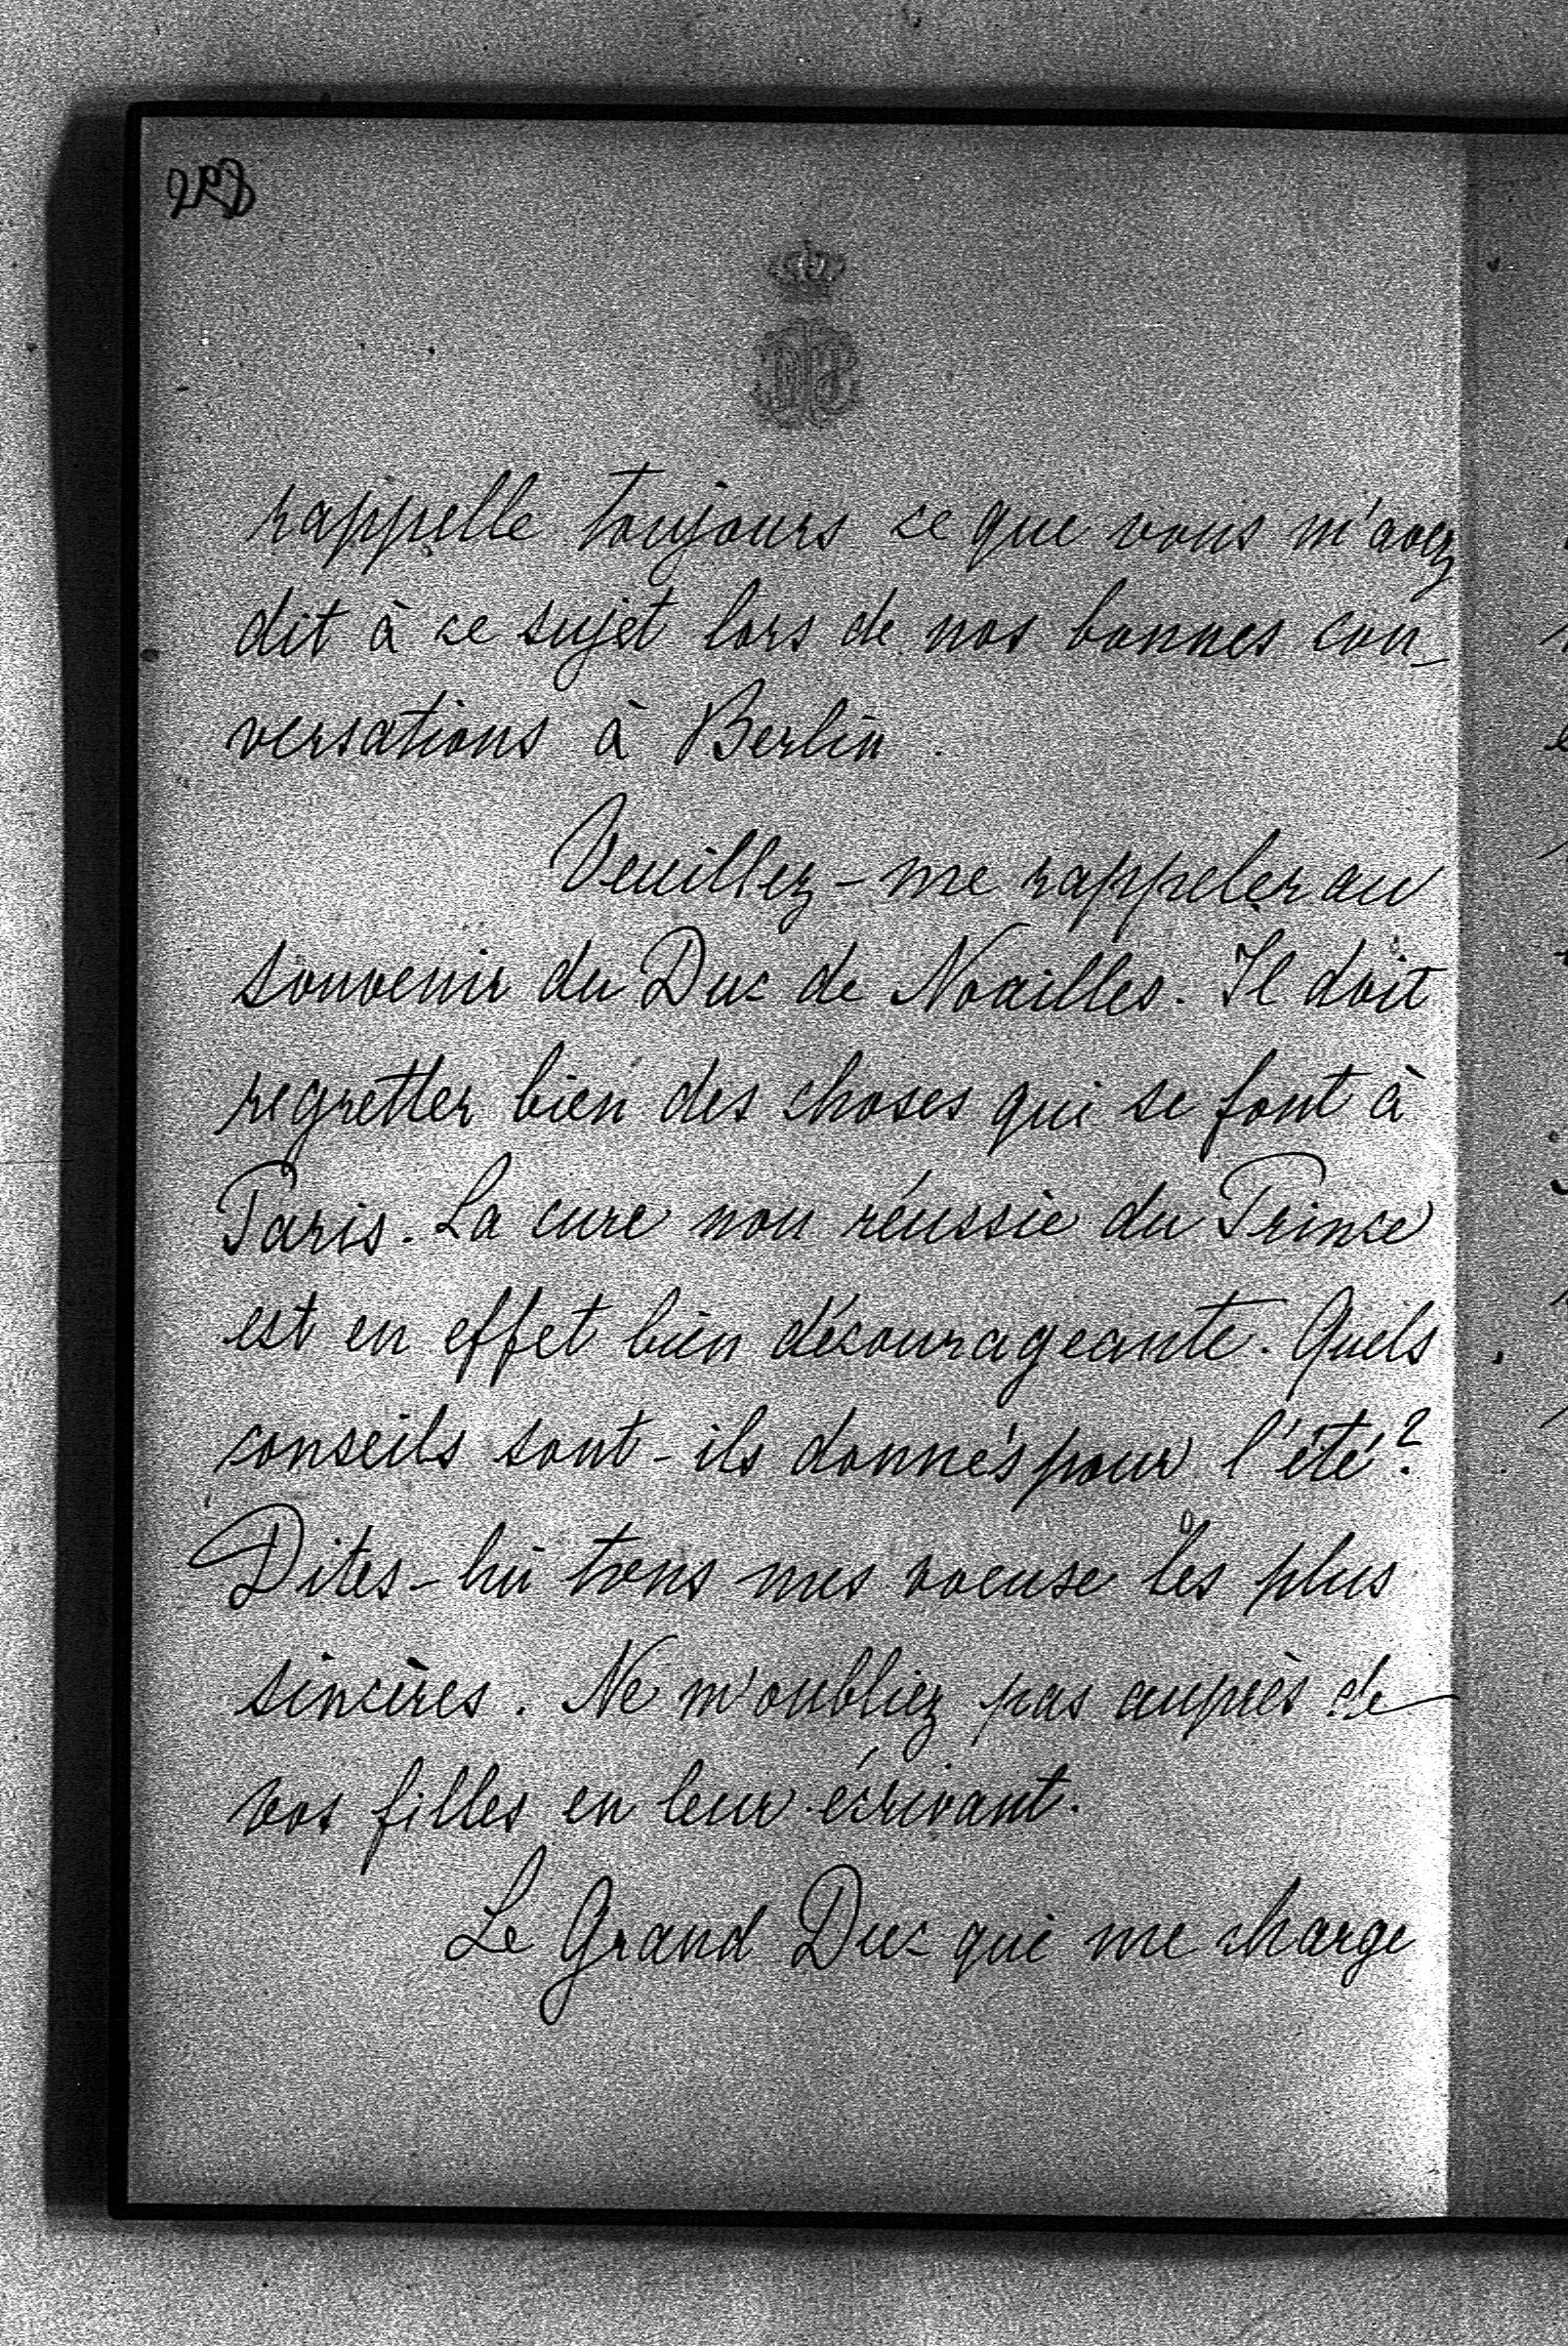 rappelle toujours ce que vous m'avez
dit à ce sujet lors de nos bonnes con-
versations à Berlin.
Veuillez-me rappeler au
souvenir du Duc de Noailles. Il doit
regretter bien des choses qui se font à
Paris. La cure non réussie du Prince
est en effet bien décourageante. Quels
conseils sont-ils donnés pour l'été?
Dites-lui tous mes voeuse les plus
sincères. Ne m'oubliez pas auprès de
vos filles en leur écrivant.
Le Grand Duc qui me charge